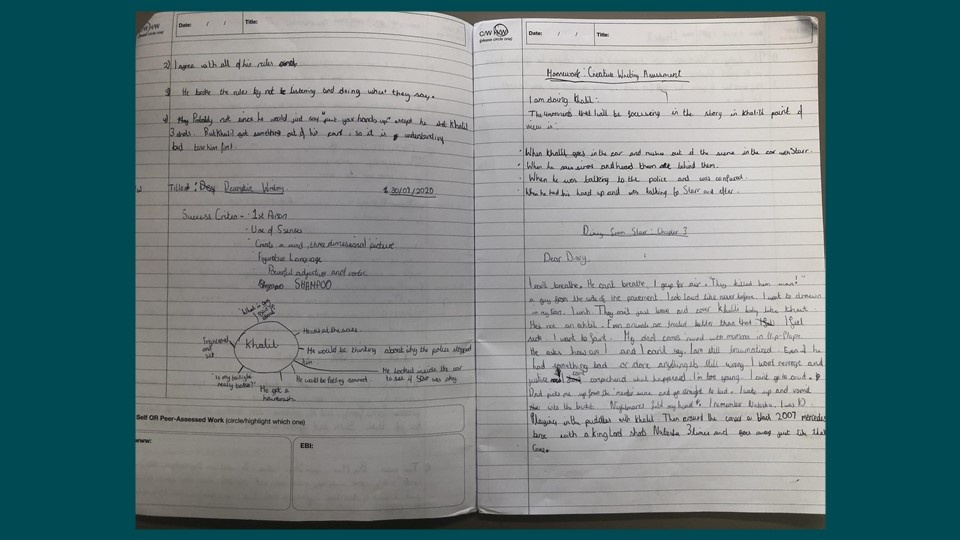 C/W H/W
(please circle one)
Date: / / Title:
2) I agree with all of his rules
3) He broke the rules by not listening and doing what they say.
4) Probably not since he would just say "put your hands up" except he shot Khalil
3 shots. But Khalil got something out of his card, so it is understanding
but
Title: Descriptive Writing 30/07/2020
Success Criteria - · 1st Person
· Use of 5 senses
· Create a vivid, three dimensional picture
Figurative Language
Powerful adjectives and verbs
SHAMPOO
"What is
Khalil
He would be thinking about why the police stopped
him
He looked inside the car
to see if Starr was okay
He would be feeling scared
He got a
hairbrush
"is my taillight
really busted?"
Self OR Peer-Assessed Work (circle/highlight which one)
www:
EBI:
C/W H/W
(please circle one)
Date: / / Title:
Homework: Creative Writing Assessment
I am doing Khalil:
The moments that I will be focussing in the story in Khalil's point of
view is:
· When Khalil goes in the car and out of the scene in the car with Starr.
· When he sirens and heard them behind them.
· When he was talking to the police and was confused.
· When he had his hand up and was talking to Starr and after.
Diary from Starr: Chapter 3
Dear Diary,
I can't breathe. He can't breathe. I gasp for air. "They killed him man!"
a guy from the side of the pavement. I sob loud like never before. I want to drown
in my tears. I wish They can't just leave and cover Khalil's body like that.
He's not an exhibit. Even animals are treated better than that I feel
sick. I want to faint. My dad comes round with momma in flip-flops.
He asks how am I and I can't say. I am still traumatized. Even if he
had something bad or done anything its still wrong. I want revenge and
justice comprehend what happened. I'm too young. I can't go to court.
Dad picks me up from the murder scene and go straight to bed. I wake up and vomit
Nightmares fill my head. I remember Natasha. I was 10.
Playing in the puddles with Khalil. Then around the corner a black 2007 mercedes
benz with a King Lord shots Natasha 3 times and goes away just like that
Gone.